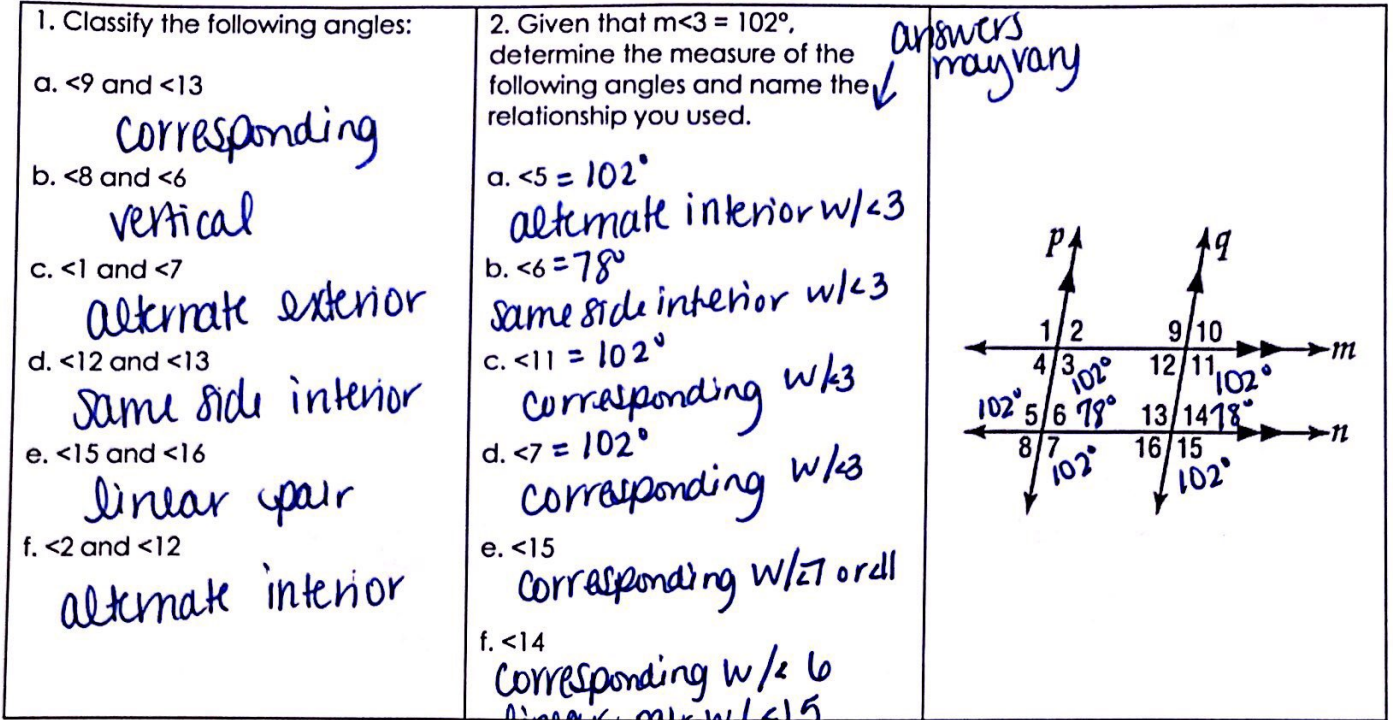 1. Classify the following angles:
a. <9 and <13
corresponding
b. <8 and <6
vertical
c. <1 and <7
alternate exterior
d. <12 and <13
same side interior
e. <15 and <16
linear pair
f. <2 and <12
alternate interior
2. Given that m<3 = 102°,
determine the measure of the
following angles and name the
relationship you used.
answers
may vary
a. <5 = 102°
alternate interior w/<3
b. <6 = 78°
same side interior w/<3
c. <11 = 102°
corresponding w/<3
d. <7 = 102°
corresponding w/<3
e. <15
corresponding w/∠7 or ∠11
f. <14
corresponding w/< 6
linear pair w/<15
p q
1 2 9 10
m
4 3 102° 12 11 102°
102° 5 6 78° 13 14 78°
n
8 7 102° 16 15 102°